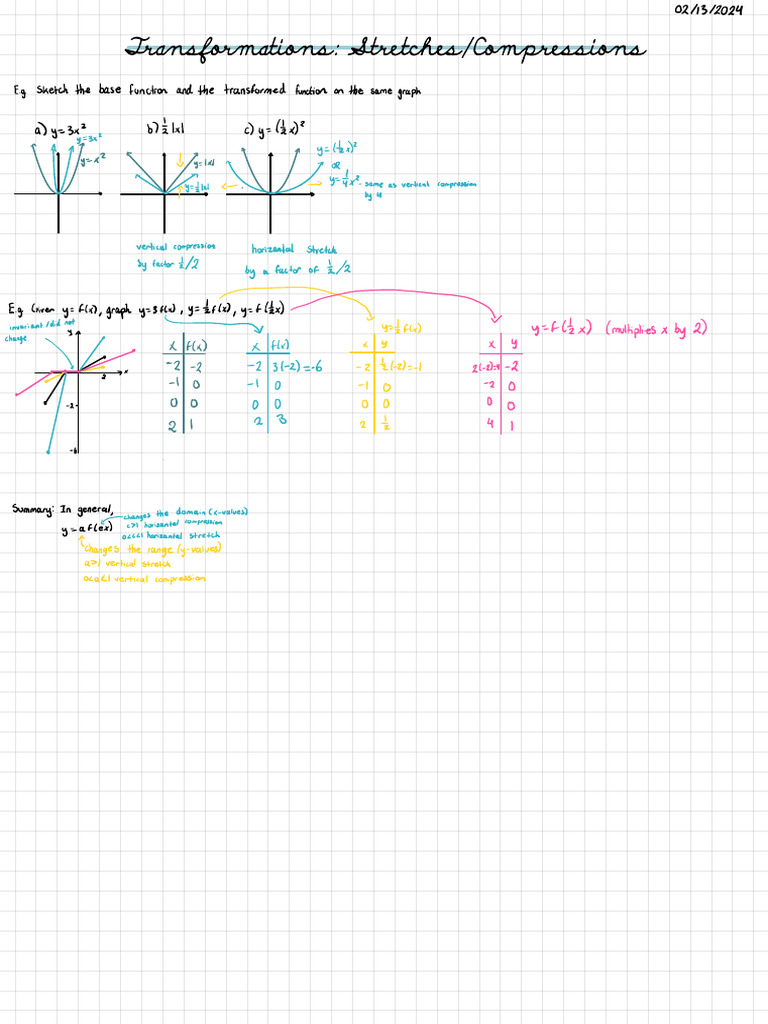 02/13/2024
Transformations: Stretches/Compressions
E.g. Sketch the base function and the transformed function on the same graph
a) y=3x² b) ½|x| c) y=(½x)²
y=3x²
y=x²
y=|x|
y=½|x|
y=(½x)²
or
y=¼x² - same as vertical compression
by 4
vertical compression
by factor ½/2
horizontal stretch
by a factor of ½/2
E.g. Given y=f(x), graph y=3f(x), y=½f(x), y=f(½x)
invariant/did not
change
y
x
2
-2
-6
x f(x)
-2 -2
-1 0
0 0
2 1
x f(x)
-2 3(-2)=-6
-1 0
0 0
2 3
y=½f(x)
x y
-2 ½(-2)=-1
-1 0
0 0
2 ½
y=f(½x) (multiplies x by 2)
x y
2(-2)=-4 -2
-2 0
0 0
4 1
Summary: In general,
y=af(cx)
changes the domain (x-values)
c>1 horizontal compression
0<c<1 horizontal stretch
changes the range (y-values)
a>1 vertical stretch
0<a<1 vertical compression